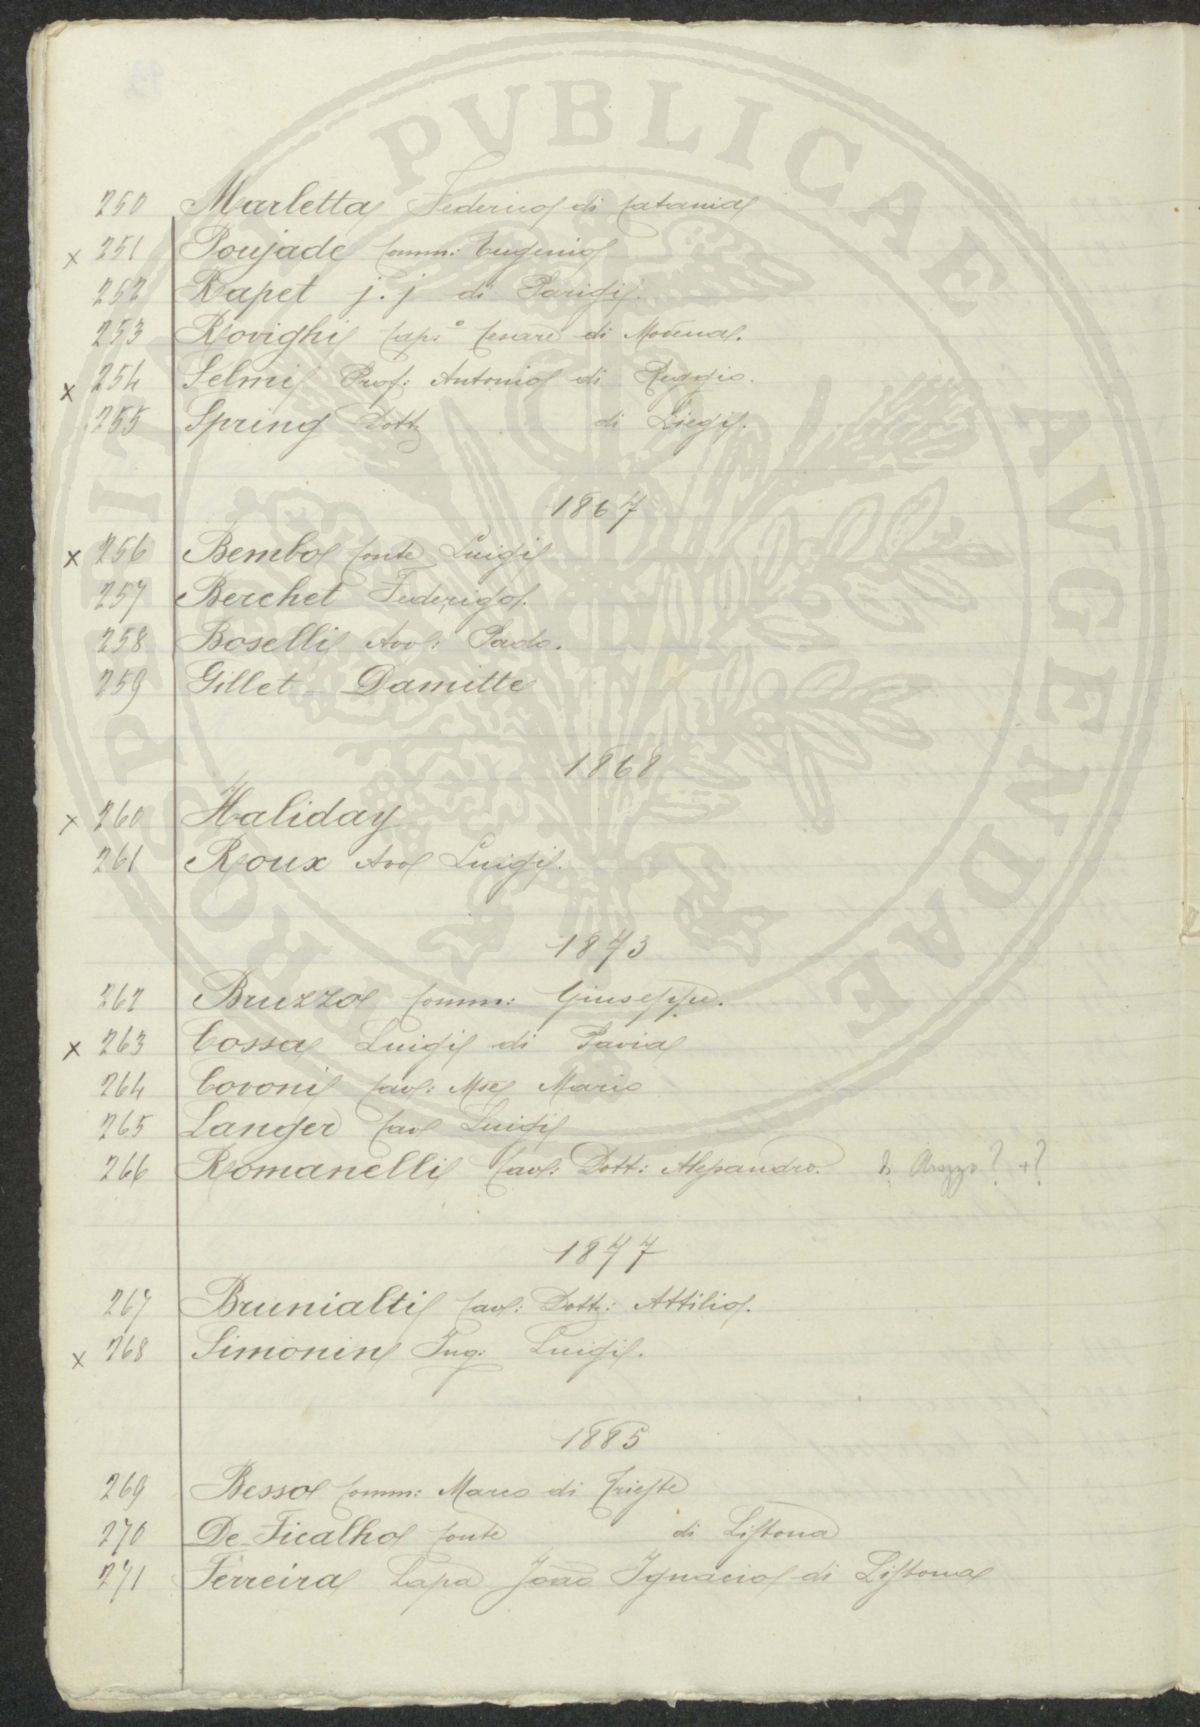 PROSPERITATI PUBLICAE AVGENDAE
250 Marletta Federico di Catania
x 251 Poujade Comm: Eugenio
252 Rapet j. j di Parigi.
253 Rovighi Cap:o Cesare di Modena.
x 254 Selmi Prof: Antonio di Reggio.
255 Spring Dott di Liegi.
1867
x 256 Bembo Conte Luigi
257 Berchet Federigo.
258 Boselli Avv: Paolo.
259 Gillet Damitte
1868
x 260 Haliday
261 Roux Avv Luigi.
1873
262 Bruzzo Comm: Giuseppe.
x 263 Cossa Luigi di Pavia
264 Covoni Cav: Mse Mario
265 Langer Cav Luigi
266 Romanelli Cav: Dott: Alessandro. di Arezzo? +?
1877
267 Brunialti Cav: Dott: Attilio.
x 268 Simonin Ing: Luigi.
1885
269 Besso Comm: Marco di Trieste
270 De Ficalho Conte di Lisbona
271 Ferreira Lapa João Ignacio di Lisbona